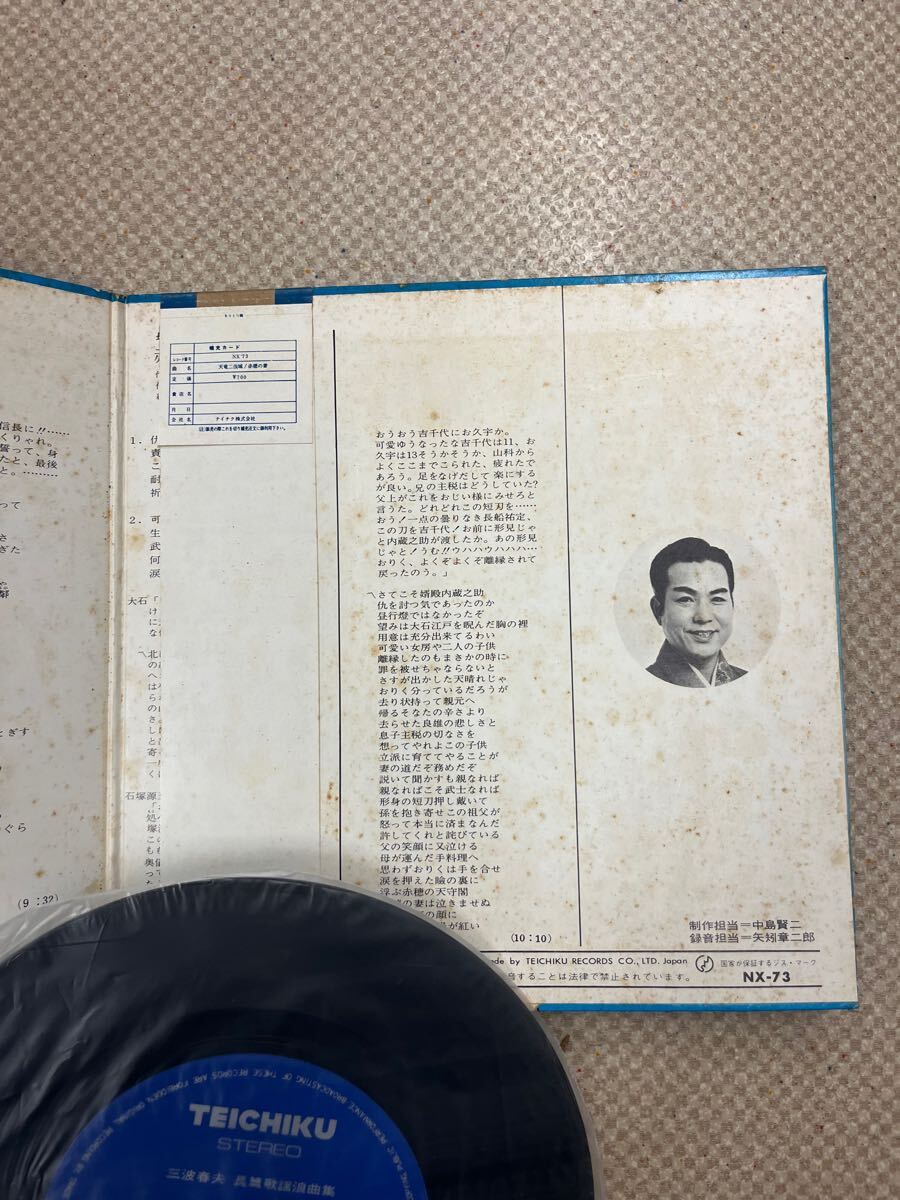 信長に!!……
くりゃれ。
誓って、身
たと、最後
と。………
って
さ
ぎた
とぎす
ぐら
(9:32)
1.
2.
大石「
石塚源
補充カード
レコード番号 NX-73
曲名 天竜二俣城/赤穂の妻
定価 ¥700
貴店名
月日
会社名 テイチク株式会社
おうおう吉千代にお久宇か。
可愛ゆうなったな吉千代は11、お
久宇は13そうかそうか、山科から
よくここまでこられた、疲れたで
あろう。足をなげだして楽にする
が良い。兄の主税はどうしていた?
父上がこれをおじい様にみせろと
言うた。どれどれこの短刃を……
おう!一点の曇りなき長船祐定、
この刀を吉千代!お前に形見じゃ
と内蔵之助が渡したか。あの形見
じゃと!うむ!!ウハハウハハハ…
おりく、よくぞよくぞ離縁されて
戻ったのう。」
〽さてこそ婿殿内蔵之助
仇を討つ気であったのか
昼行燈ではなかったぞ
望みは大石江戸を睨んだ胸の裡
用意は充分出来てるわい
可愛い女房や二人の子供
離縁したのもまさかの時に
罪を被せちゃならないと
さすが出かした天晴れじゃ
おりく分っているだろうが
去り状持って親元へ
帰るそなたの辛さより
去らせた良雄の悲しさと
息子主税の切なさを
想ってやれよこの子供
立派に育ててやることが
妻の道だぞ務めだぞ
説いて聞かすも親なれば
親なればこそ武士なれば
形身の短刀押し戴いて
孫を抱き寄せこの祖父が
怒って本当に済まなんだ
許してくれと詫びている
父の笑顔に又泣ける
母が運んだ手料理へ
思わずおりくは手を合せ
涙を押えた瞼の裏に
浮ぶ赤穂の天守閣
の妻は泣きませぬ
の顔に
が紅い
(10:10)
制作担当=中島賢二
録音担当=矢矧章二郎
by TEICHIKU RECORDS CO., LTD. Japan
国家が保証するジス・マーク
音することは法律で禁止されています。
NX-73
TEICHIKU
STEREO
三波春夫 長篇歌謡浪曲集